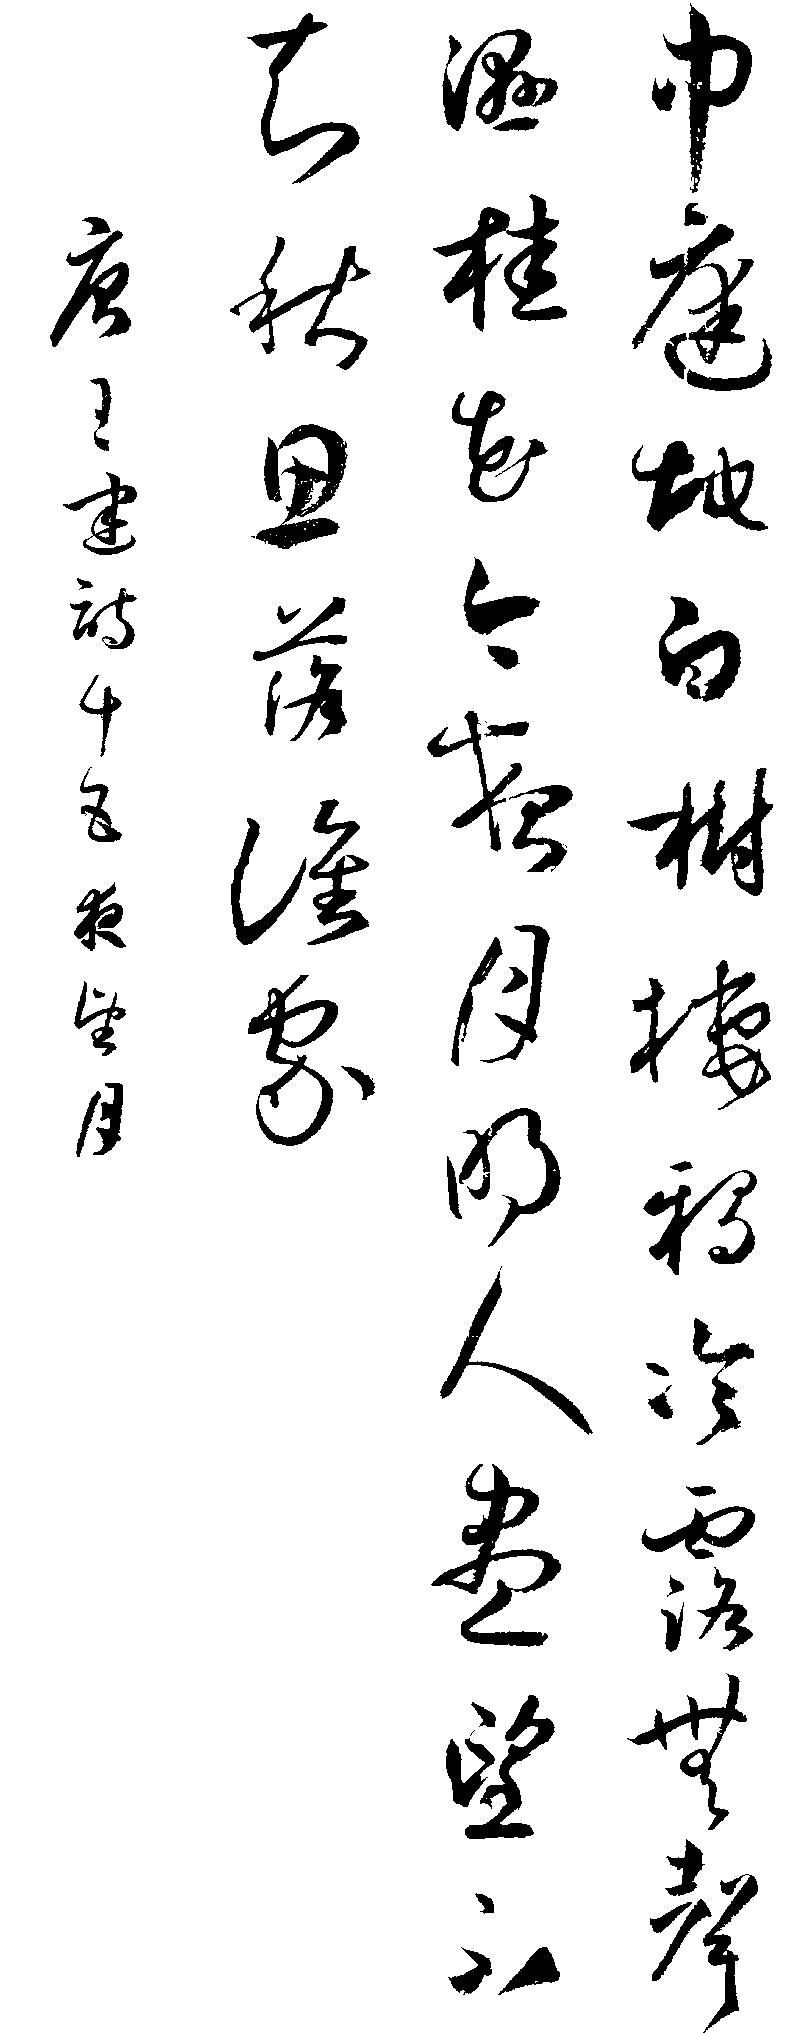 中庭地白樹棲鴉冷露無聲
濕桂花今夜月明人盡望不
知秋思落誰家
唐王建詩十五夜望月